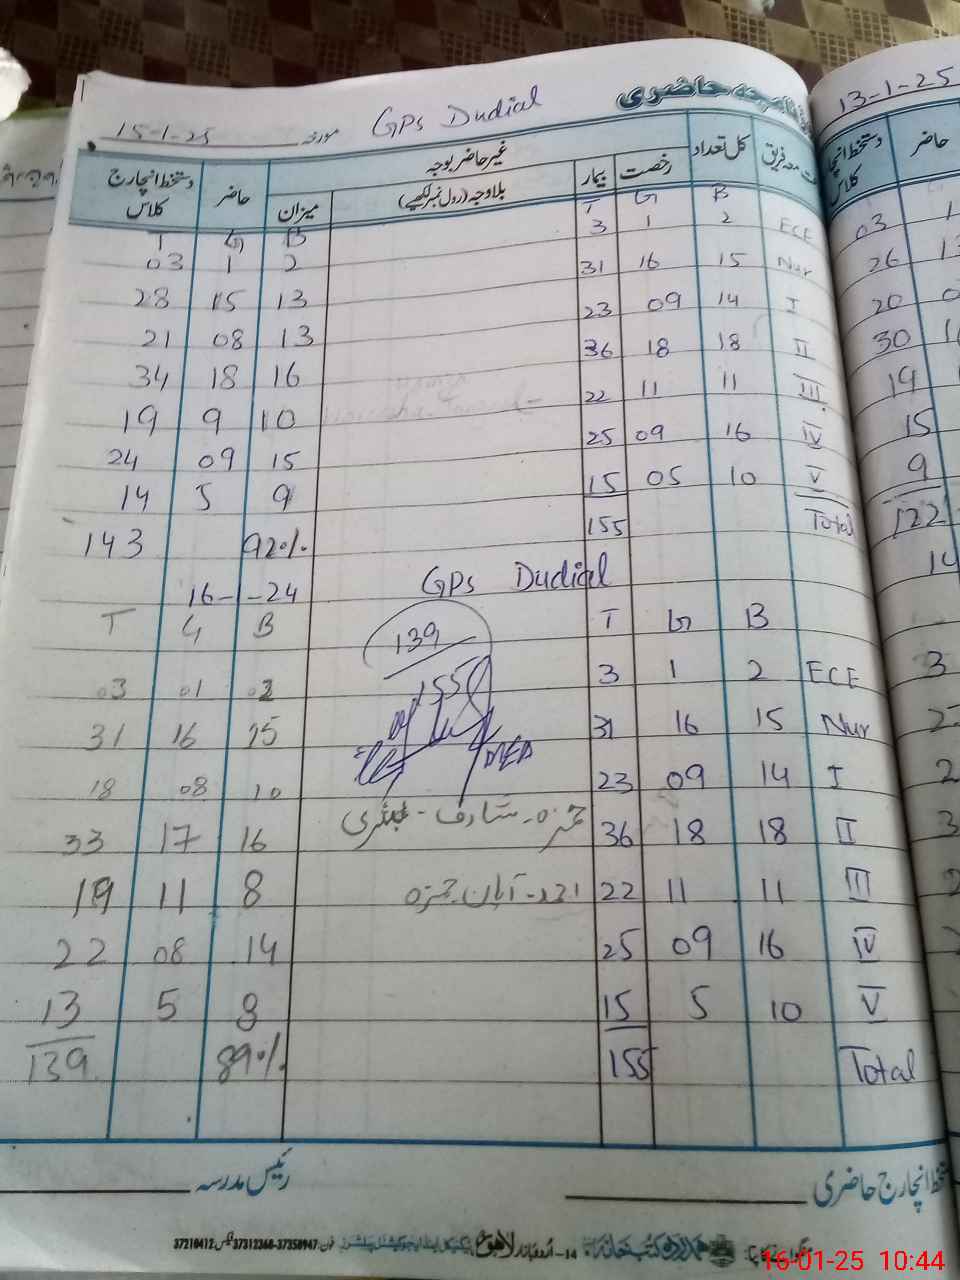 حاضری
GPS Dudial
مورخہ 15-1-25
جماعت معہ فریق کل تعداد رخصت بیمار غیر حاضر بوجہ حاضر دستخط انچارج کلاس
بلاوجہ (رول نمبر لکھیے) میزان
B G T B G T
ECE 2 1 3 2 1 03
Nur 15 16 31 13 15 28
I 14 09 23 13 08 21
II 18 18 36 16 18 34
III 11 11 22 10 9 19
IV 16 09 25 15 09 24
V 10 05 15 9 5 14
Total 155 92% 143
GPS Dudial 16-1-24
B G T B G T
139
155
ECE 2 1 3 02 01 03
Nur 15 16 31 15 16 31
I 14 09 23 10 08 18
II 18 18 36 حمزہ - شارف - 16 17 33
III 11 11 22 احمد - آبان - حمزہ 8 11 19
IV 16 09 25 14 08 22
V 10 5 15 8 5 13
Total 155 89% 139
دستخط انچارج حاضری رئیس مدرسہ
14-اردو بازار لاہور فون: 37358947-37312368 فیکس: 37210412
13-1-25
حاضر دستخط انچارج کلاس
03
26
20
30
19
15
9
122
16-01-25 10:44